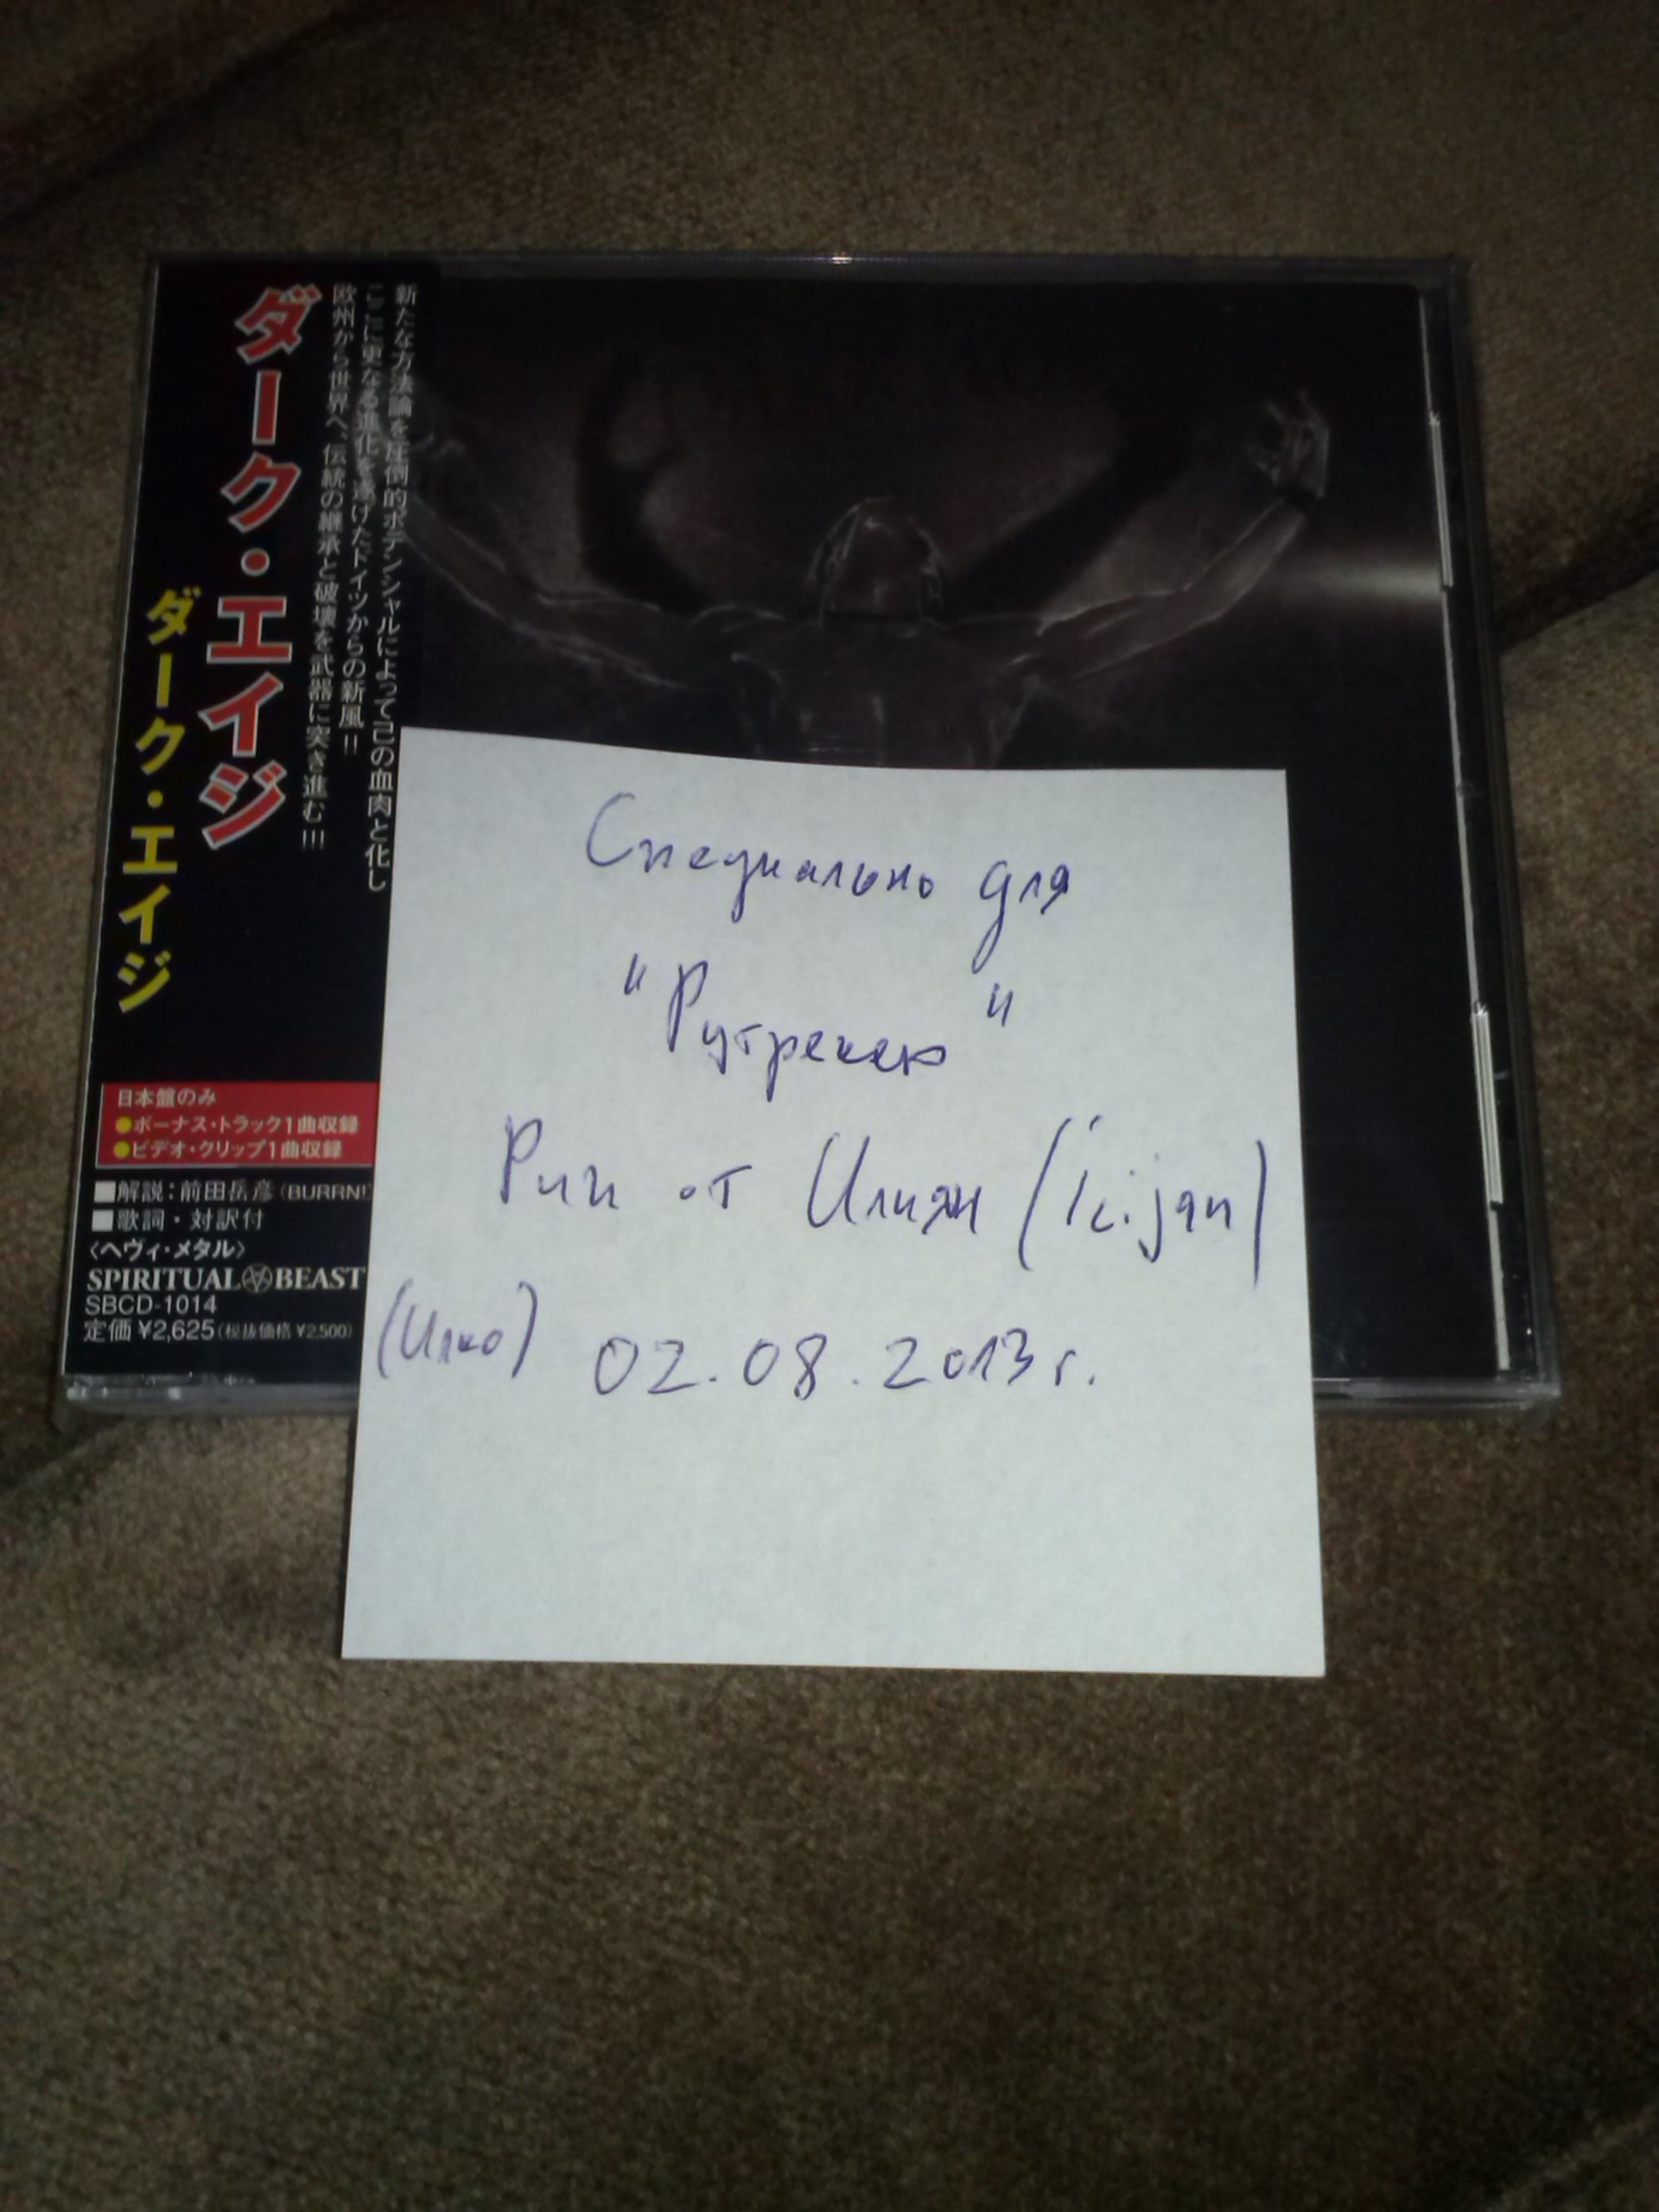 ダーク・エイジ
ダーク・エイジ
新たな方法論を圧倒的ポテンシャルによって己の血肉と化し
ここに更なる進化を遂げたドイツからの新風!!
欧州から世界へ、伝統の継承と破壊を武器に突き進む!!!
日本盤のみ
●ボーナス・トラック1曲収録
●ビデオ・クリップ1曲収録
■解説：前田岳彦(BURRN!
■歌詞・対訳付
〈ヘヴィ・メタル〉
SPIRITUAL BEAST
SBCD-1014
定価¥2,625(税抜価格¥2,500)
Специально для
"Рутрекер"
Рип от Илиян (icijan)
(Илко) 02.08.2013 г.